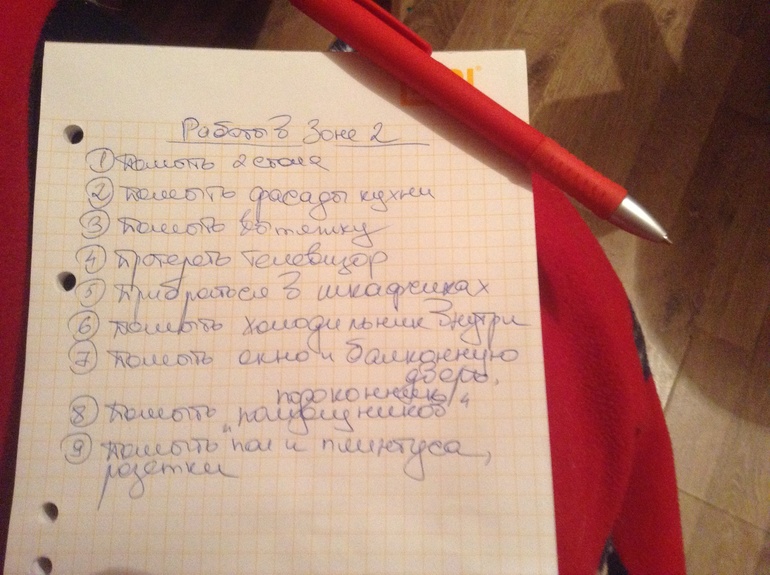 Работы в Зоне 2
① Помыть 2 стола
② Помыть фасады кухни
③ Помыть вытяжку
④ Протереть телевизор
⑤ Прибраться в шкафчиках
⑥ Помыть холодильник внутри
⑦ Помыть окно и балконную
дверь,
подоконник
⑧ Помыть "помощников"
⑨ Помыть пол и плинтуса,
розетки